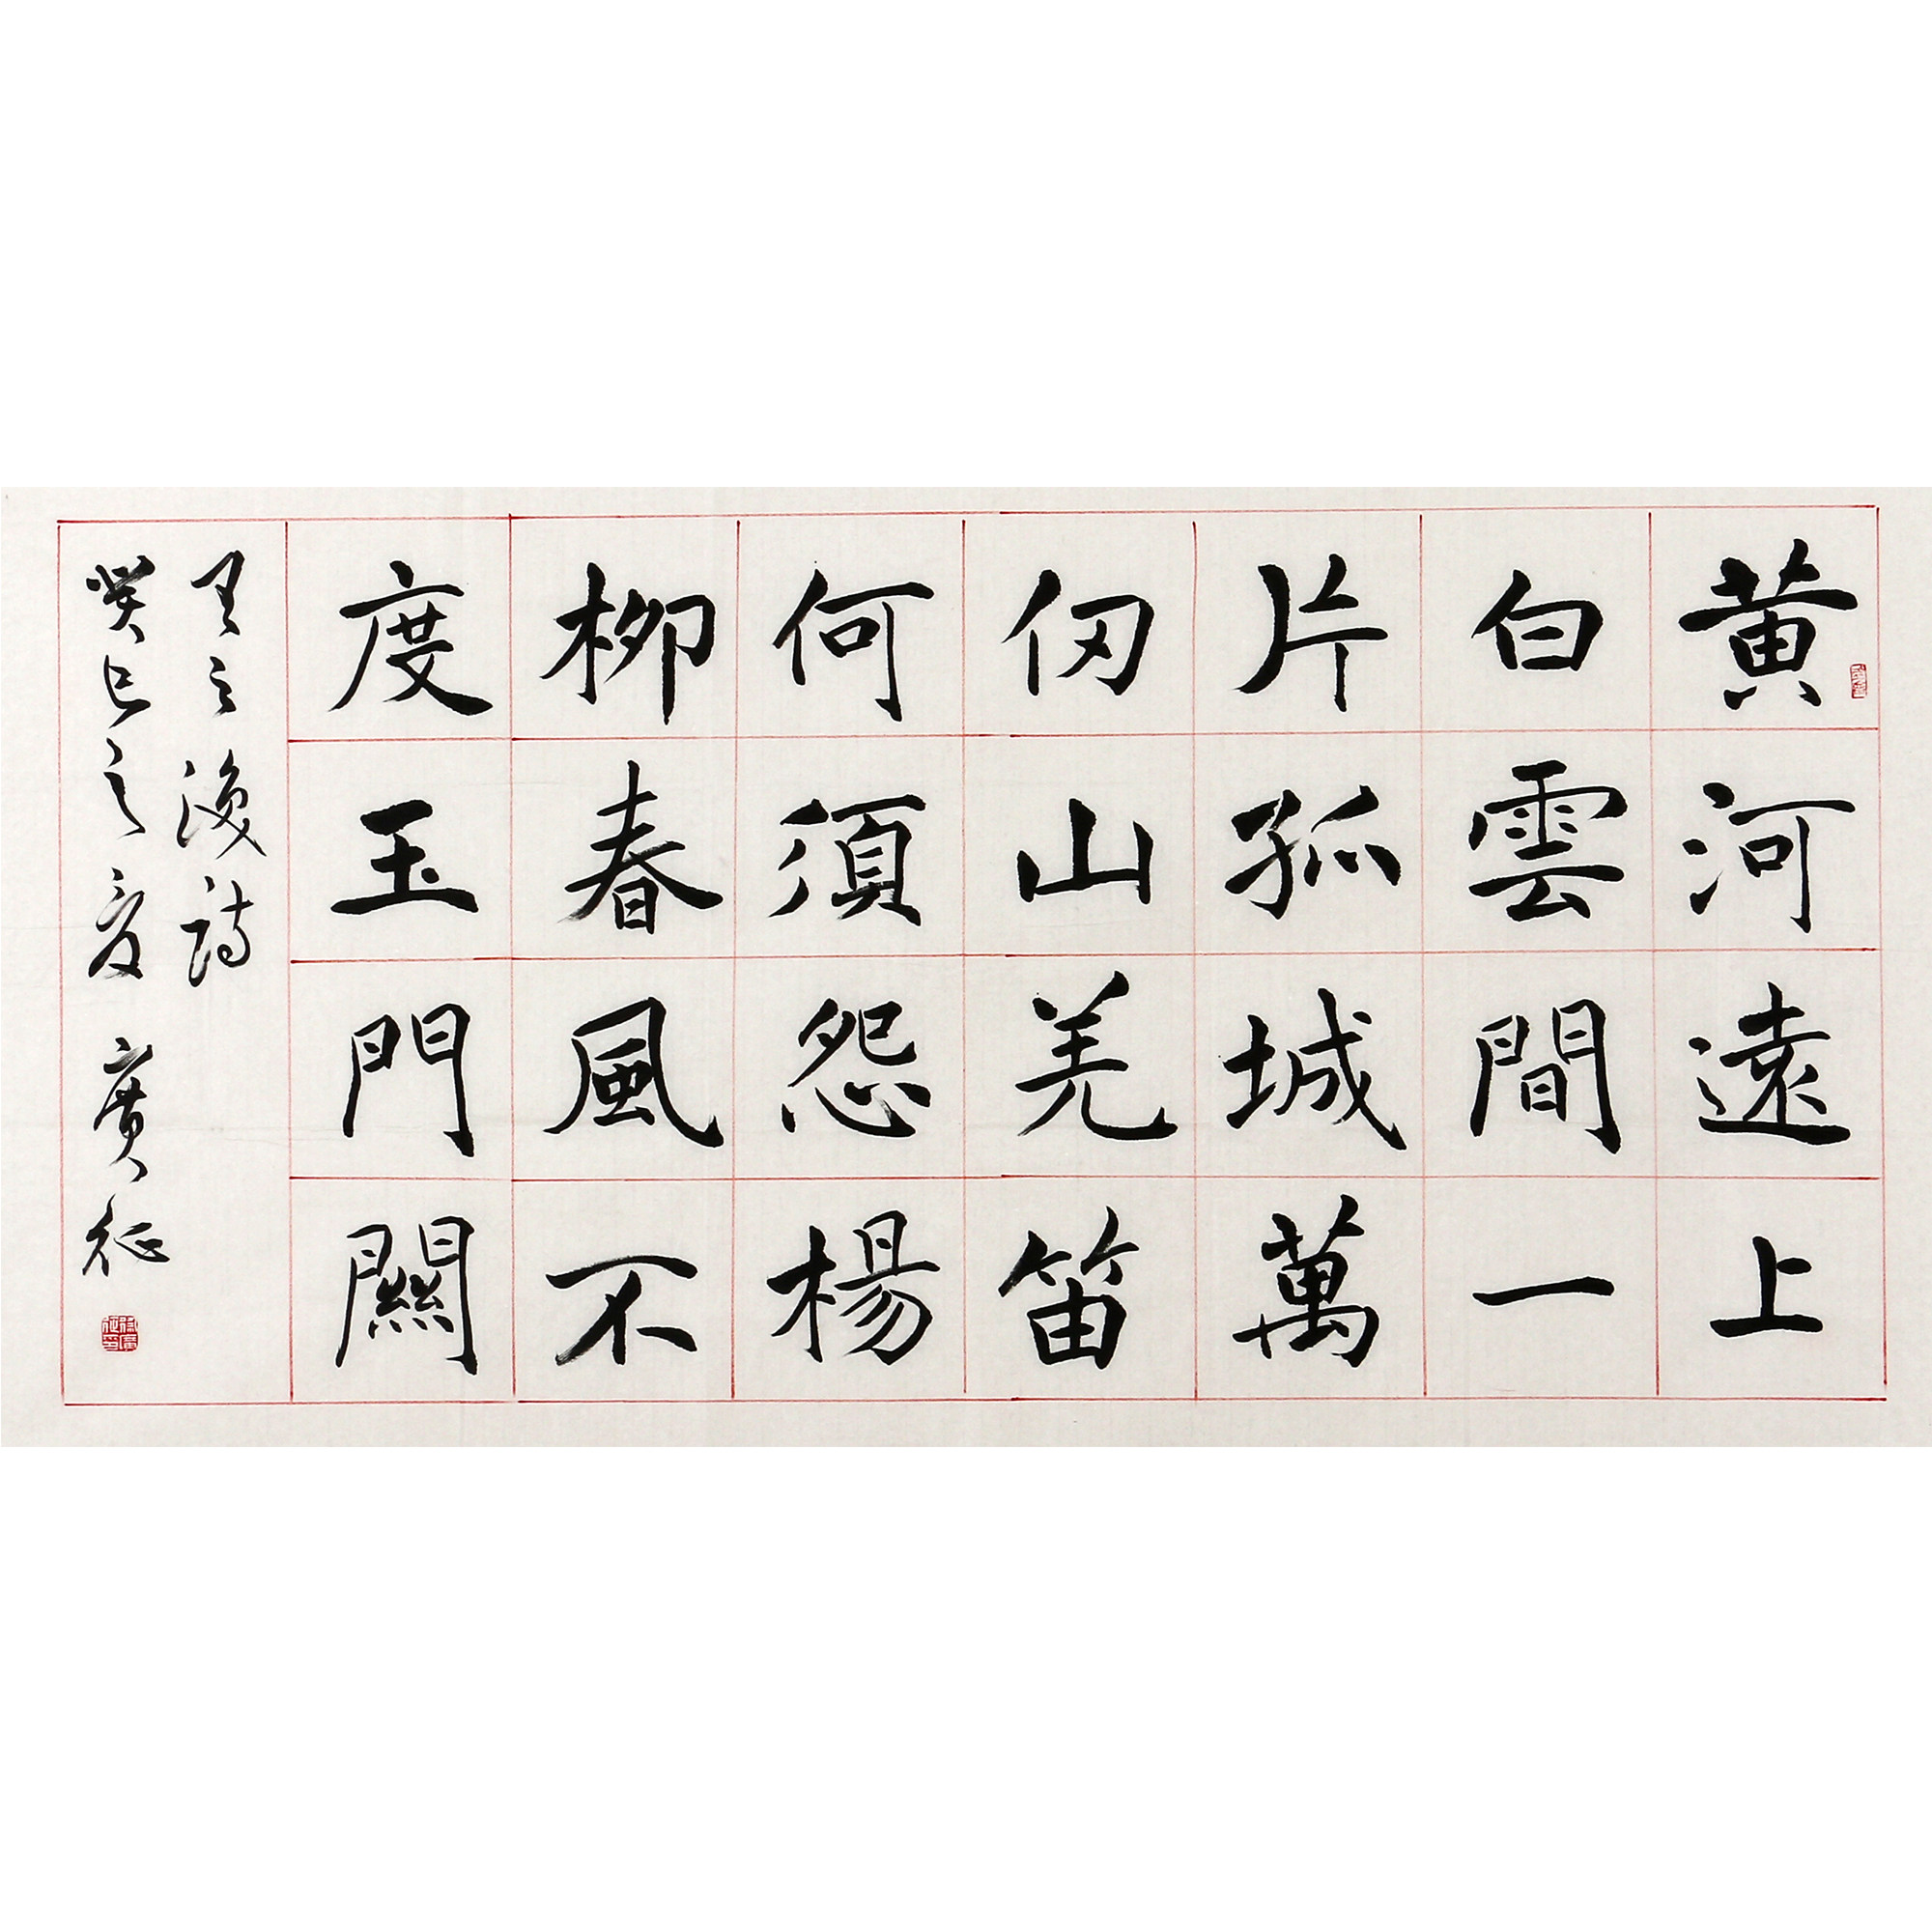 黄河遠上
白雲間一
片孤城萬
仞山羌笛
何須怨楊
柳春風不
度玉門關
王之渙詩
癸巳之夏 廣征